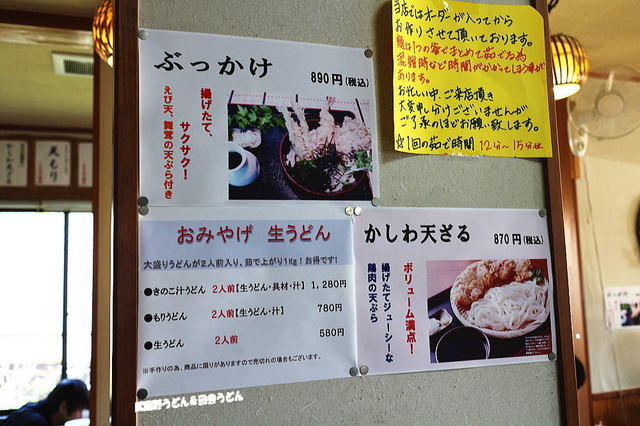 ぶっかけ
890円(税込)
揚げたて、
サクサク!
えび天、舞茸の天ぷら付き
当店ではオーダーが入ってから
お作りさせて頂いております。
麺は1つの釜でまとめて茹でる為
混雑時など時間がかかってしまう事が
あります。
お忙しい中、ご来店頂き
大変申し分けございませんが
ご了承のほどお願い致します。
☆1回の茹で時間 12分〜15分位
おみやげ 生うどん
大盛りうどんが2人前入り、茹で上がり1Kg!お得です!
●きのこ汁うどん 2人前【生うどん・具材・汁】 1,280円
●もりうどん 2人前【生うどん・汁】 780円
●生うどん 2人前 580円
※手作りの為、商品に限りがありますので売切れの場合もございます。
かしわ天ざる
870円(税込)
ボリューム満点!
揚げたてジューシーな
鶏肉の天ぷら
野うどん&田舎うどん